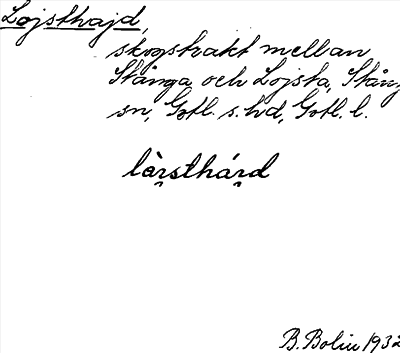 Lojsthajd,
skogstrakt mellan
Stånga och Lojsta, Stånga
sn, Gotl. s. hd, Gotl. l.
B. Bolin 1932